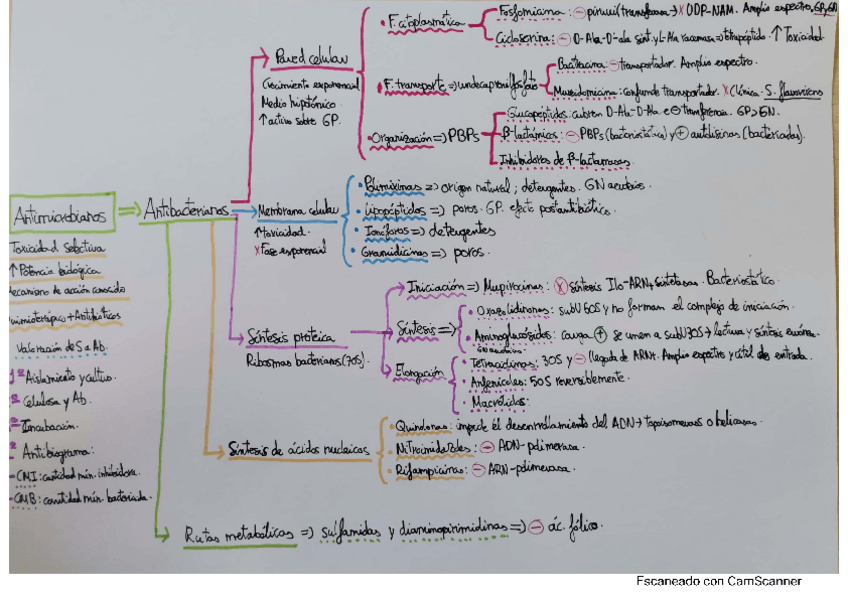 Antimicrobianos => Antibacterianos
Toxicidad selectiva
↑ Potencia biológica
Mecanismo de acción conocido
Quimioterápico + Antibióticos
Valoración de S a Ab.
1º Aislamiento y cultivo.
º Celulosa y Ab.
º Incubación.
º Antibiograma:
- CMI: cantidad mín. inhibidora.
- CMB: cantidad mín. bactericida.
Pared celular
Crecimiento exponencial
Medio hipotónico.
↑ activo sobre GP.
• F. citoplasmática
Fosfomicina: ⊖ piruvil transferasa → X UDP-NAM. Amplio espectro, GP, GN
Cicloserina: ⊖ D-Ala-D-ala sint. y L-Ala racemasa => tetrapéptido. ↑ Toxicidad.
• F. transporte => undecaprenilfosfato
Bacitracina: ⊖ transportador. Amplio espectro.
Mureidomicina: confunde transportador. X Clínica. S. flavovirens
• Organización => PBPs
Glucopéptidos: cubren D-Ala-D-Ala e ⊖ transferencia. GP>GN.
β-lactámicos: ⊖ PBPs (bacteriostática) y ⊕ autolisinas (bactericidas).
Inhibidores de β-lactamasas.
Membrana celular
↑ toxicidad.
X Fase exponencial
• Polimixinas => origen natural; detergentes. GN aerobios.
• Lipopéptidos => poros. GP. efecto postantibiótico.
• Ionóforos => detergentes
• Gramidicinas => poros.
Síntesis proteica
Ribosomas bacterianos (70S).
Iniciación => Mupirocinas: X síntesis Ile-ARNt sintetasa. Bacteriostático.
Síntesis =>
• Oxazolidinonas: subU 50S y no forman el complejo de iniciación.
• Aminoglucósidos: carga ⊕ se unen a subU 30S → lectura y síntesis errónea.
GN aerobios
Elongación
• Tetraciclinas: 30S y ⊖ llegada de ARNt. Amplio espectro y citol de entrada.
• Anfenicoles: 50S reversiblemente.
• Macrólidos:
Síntesis de ácidos nucleicos
• Quinolonas: impide el desenrollamiento del ADN → topoisomerasas o helicasas.
• Nitroimidazoles: ⊖ ADN-polimerasa.
• Rifampicinas: ⊖ ARN-polimerasa.
Rutas metabólicas => sulfamidas y diaminopirimidinas => ⊖ ác. fólico.
Escaneado con CamScanner